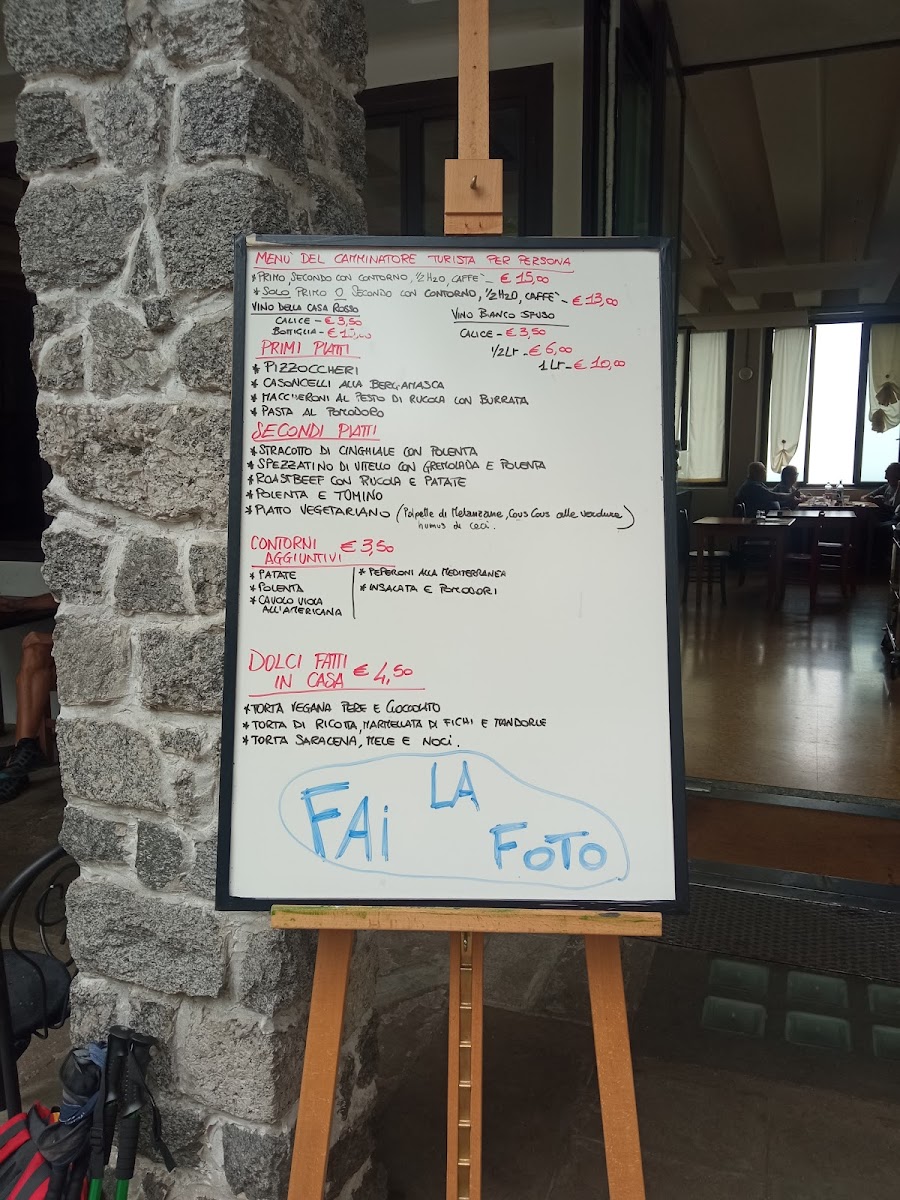 MENÙ DEL CAMMINATORE TURISTA PER PERSONA
* PRIMO, SECONDO CON CONTORNO, 1/2 H2O, CAFFE' € 15,00
* SOLO PRIMO O SECONDO CON CONTORNO, 1/2 H2O, CAFFE' - € 13,00
VINO DELLA CASA ROSSO
CALICE - € 3,50
BOTTIGLIA - €
VINO BIANCO SFUSO
CALICE - € 3,50
1/2 Lt - € 6,00
1 Lt - € 10,00
PRIMI PIATTI
* PIZZOCCHERI
* CASONCELLI ALLA BERGAMASCA
* MACCHERONI AL PESTO DI RUCOLA CON BURRATA
* PASTA AL POMODORO
SECONDI PIATTI
* STRACOTTO DI CINGHIALE CON POLENTA
* SPEZZATINO DI VITELLO CON GREMOLADA E POLENTA
* ROASTBEEF CON RUCOLA E PATATE
* POLENTA E TOMINO
* PIATTO VEGETARIANO (Polpelle di Melanzane, Cous Cous alle verdure,
humus di ceci.)
CONTORNI AGGIUNTIVI € 3,50
* PATATE
* POLENTA
* CAVOLO VIOLA
ALL'AMERICANA
* PEPERONI ALLA MEDITERRANEA
* INSALATA E POMODORI
DOLCI FATTI
IN CASA € 4,50
* TORTA VEGANA PERE E CIOCCOLATO
* TORTA DI RICOTTA, MARMELLATA DI FICHI E MANDORLE
* TORTA SARACENA, MELE E NOCI.
FAI LA FOTO